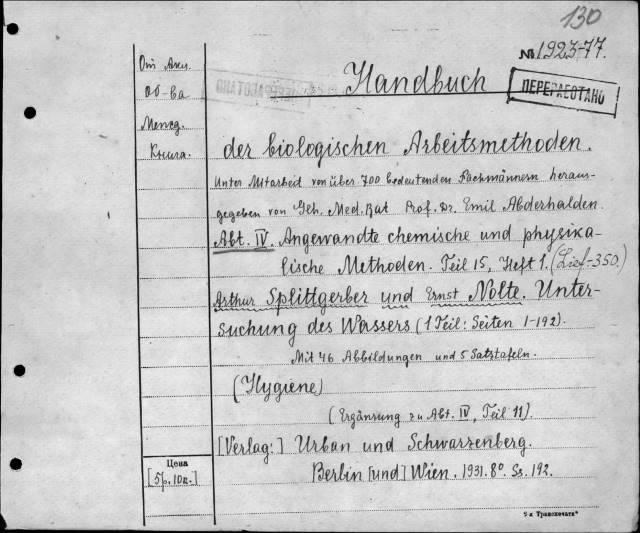 130
№ 1923-77.
От Акц.
Handbuch
ПЕРЕРАБОТАНО
ПЕРЕРАБОТАНО
оо-ва
Межд.
Книга.
der biologischen Arbeitsmethoden.
Unter Mitarbeit von über 700 bedeutenden Fachmännern heraus-
gegeben von Geh. Med. Rat Prof. Dr. Emil Abderhalden.
Abt. IV. Angewandte chemische und physika-
lische Methoden. Teil 15, Heft 1. (Lief-350.)
Arthur Splittgerber und Ernst Nolte. Unter-
suchung des Wassers (1 Teil: Seiten 1-192).
Mit 46 Abbildungen und 5 Satztafeln.
(Hygiene)
(Ergänzung zu Abt. IV, Teil 11).
[Verlag:] Urban und Schwarzenberg.
Цена
[5р. 10к.]
Berlin [und] Wien. 1931. 8°. Ss. 192.
9-я Транспечать"